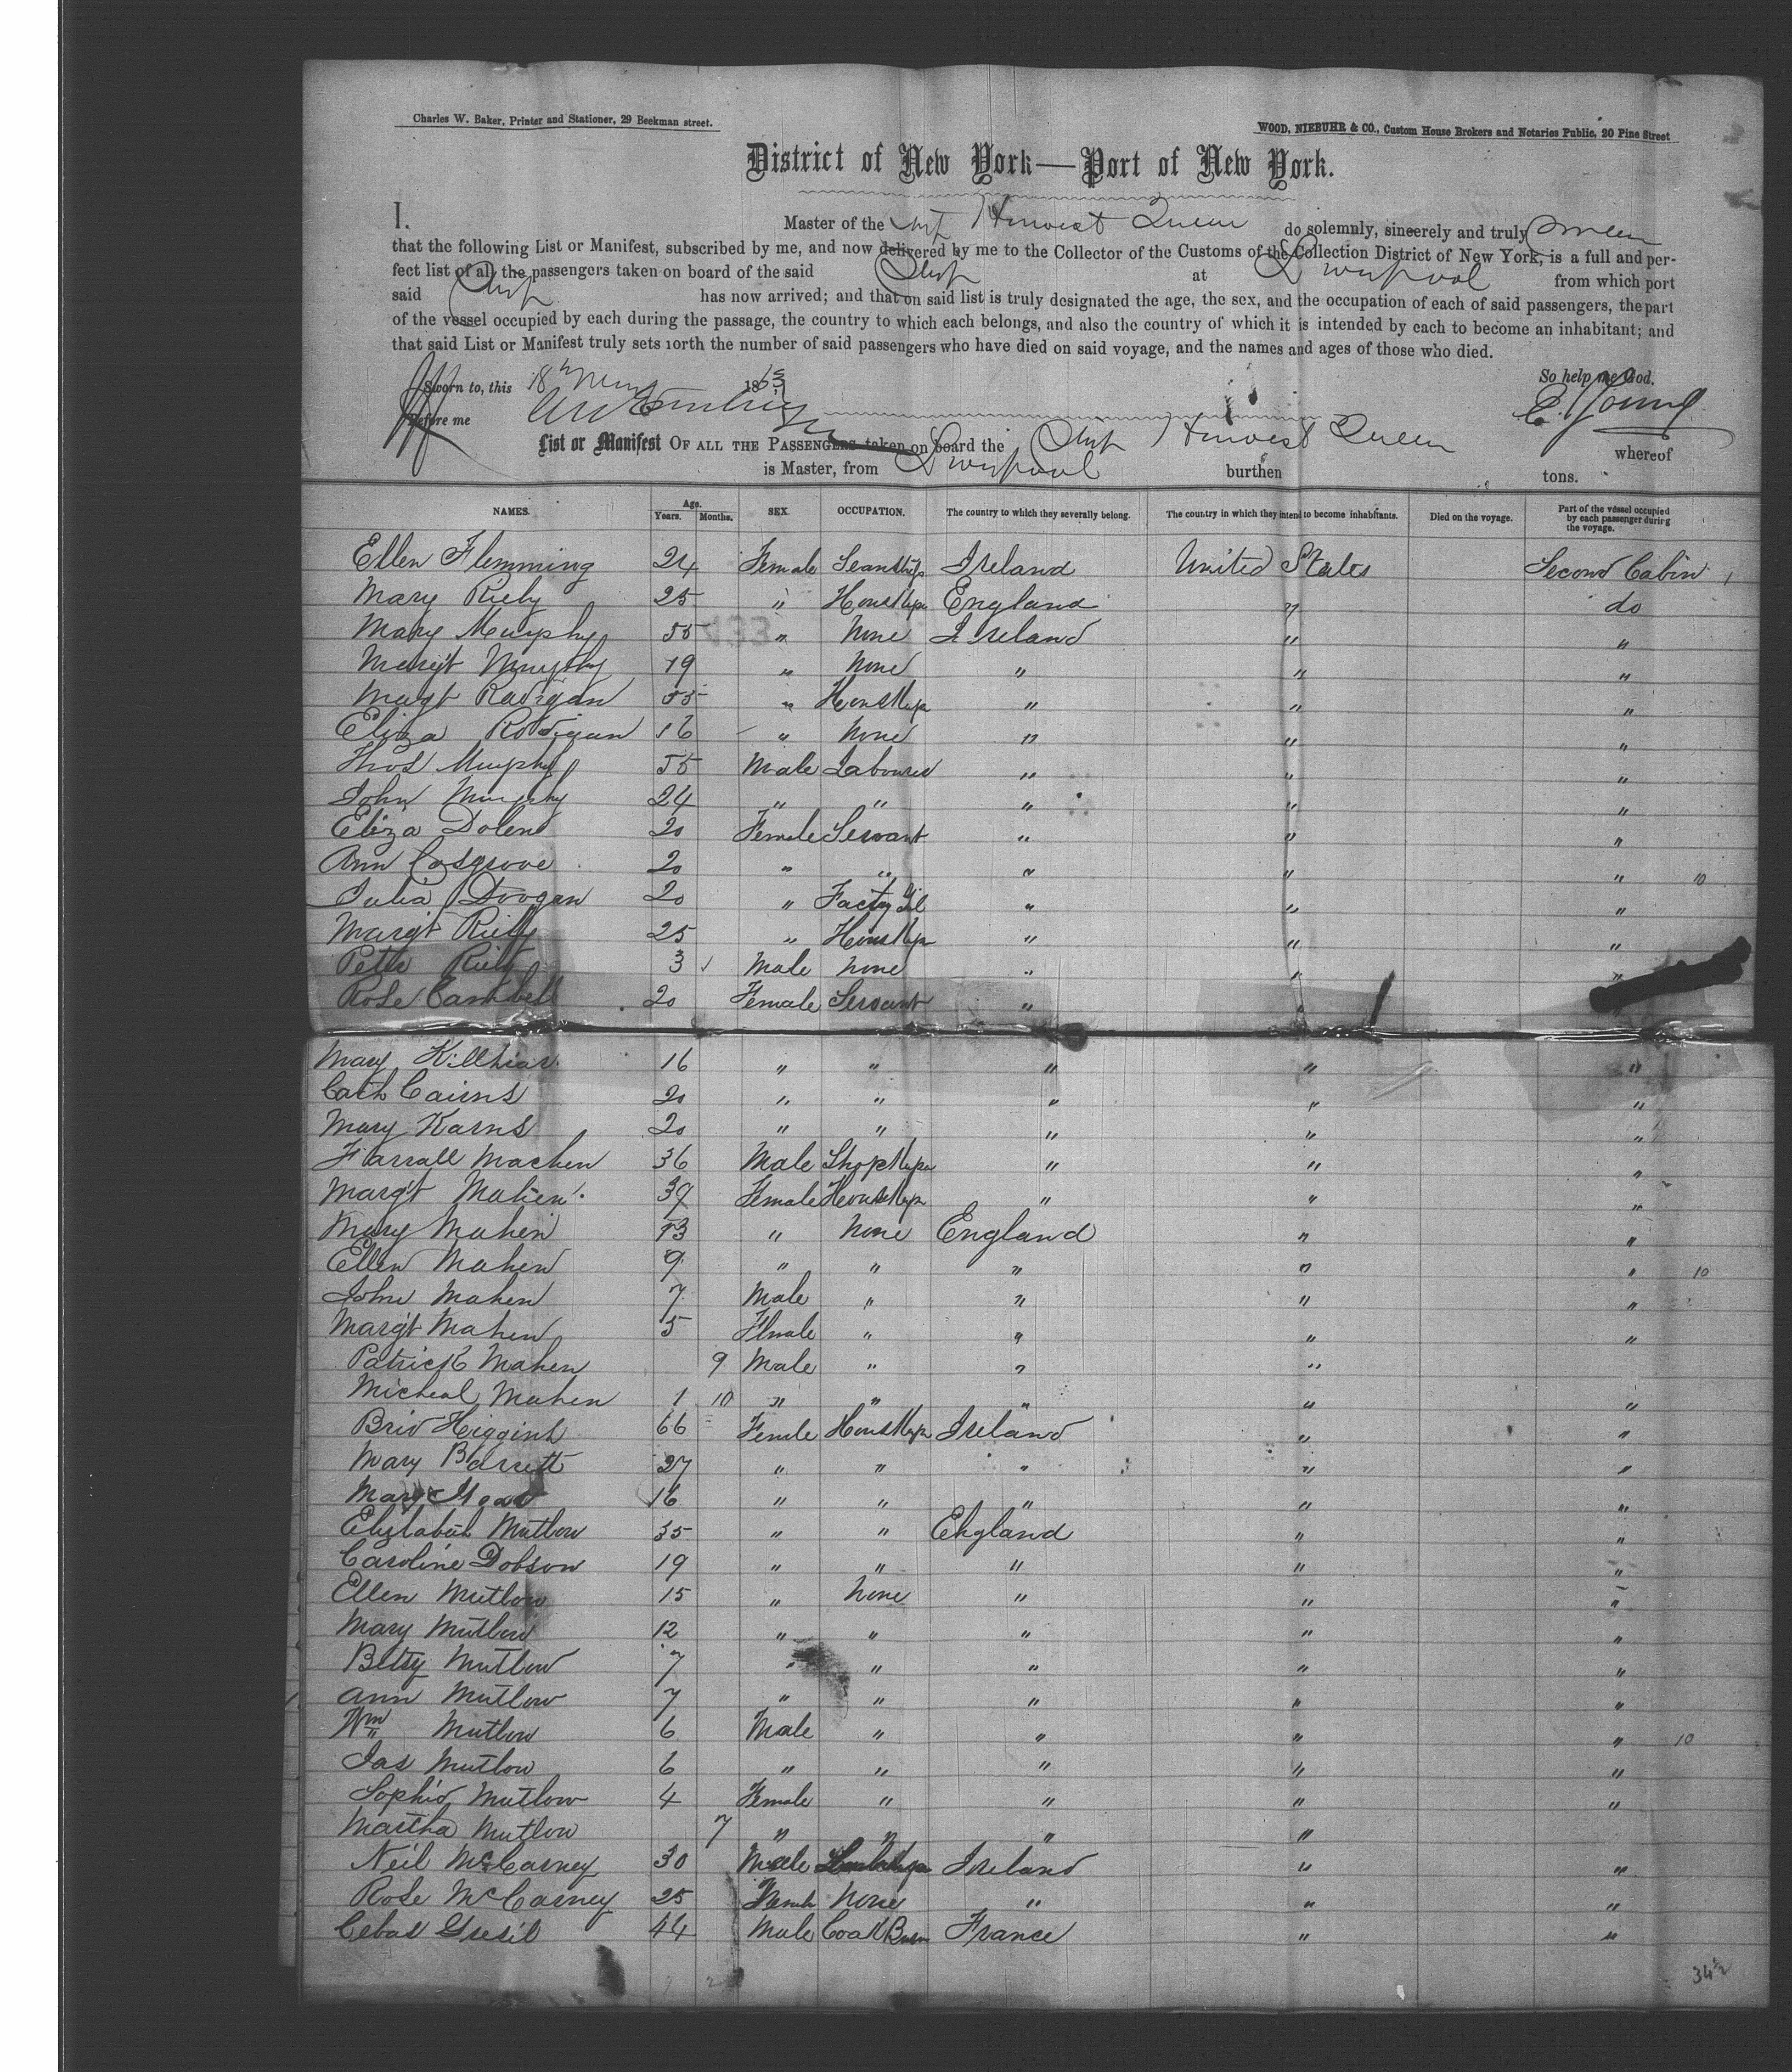 Charles W. Baker, Printer and Stationer, 29 Beekman street.
WOOD, NIEBUHR & CO., Custom House Brokers and Notaries Public, 20 Pine Street
District of New York—Port of New York.
I. Master of the Ship Harvest Queen do solemnly, sincerely and truly swear
that the following List or Manifest, subscribed by me, and now delivered by me to the Collector of the Customs of the Collection District of New York, is a full and per-
fect list of all the passengers taken on board of the said Ship at Liverpool from which port
said Ship has now arrived; and that on said list is truly designated the age, the sex, and the occupation of each of said passengers, the part
of the vessel occupied by each during the passage, the country to which each belongs, and also the country of which it is intended by each to become an inhabitant; and
that said List or Manifest truly sets forth the number of said passengers who have died on said voyage, and the names and ages of those who died.
Sworn to, this 18th 1865 So help me God.
Before me E. Young
List or Manifest OF ALL THE PASSENGERS taken on board the Ship Harvest Queen whereof
is Master, from Liverpool burthen tons.
NAMES. Age. Years. Months. SEX. OCCUPATION. The country to which they severally belong. The country in which they intend to become inhabitants. Died on the voyage. Part of the vessel occupied by each passenger during the voyage.
Ellen Flemming 24 Female Ireland United States Second Cabin 1
Mary Riely 25 " Houskepr England " do
Mary Murphy 55 " None Ireland " "
Margt Murphy 19 " None " " "
Magt Radigan 55 " Houskepr " " "
Eliza Radigan 16 " None " " "
Thos Murphy 55 Male Labourer " " "
John Murphy 24 " " " " "
Eliza Dolen 20 Female Servant " " "
Ann Cosgrove 20 " " " " " 10
Julia Doogan 20 " " " "
Margt Riely 25 " Houskepr " " "
Peter Riely 3 Male None " " "
Rose Cambell 20 Female Servant " " "
Mary 16 " " " " "
Cath Cairns 20 " " " " "
Mary Karns 20 " " " " "
Farrall Machen 36 Male Shopkepr " " "
Margt Mahen 39 Female Houskepr " " "
Mary Mahen 13 " None England " "
Ellen Mahen 9 " " " " " 10
John Mahen 7 Male " " " "
Margt Mahen 5 Female " " " "
Patrick Mahen 9 Male " " "
Micheal Mahen 1 10 " " " " "
Brid Higgins 66 Female Houskepr Ireland " "
Mary Barrett 27 " " " " "
Mary 16 " " " " "
Elizabeth Mutlow 35 " " England " "
Caroline Dobson 19 " " " " "
Ellen Mutlow 15 " None " " "
Mary Mutlow 12 " " " " "
Betsy Mutlow 7 " " " " "
Ann Mutlow 7 " " " " "
Wm Mutlow 6 Male " " " " 10
Jas Mutlow 6 " " " " "
Sophia Mutlow 4 Female " " " "
Martha Mutlow 7 " " " "
Neil McCarney 30 Male Ireland " "
Rose McCarney 25 Female None " " "
44 Male France " "
34½